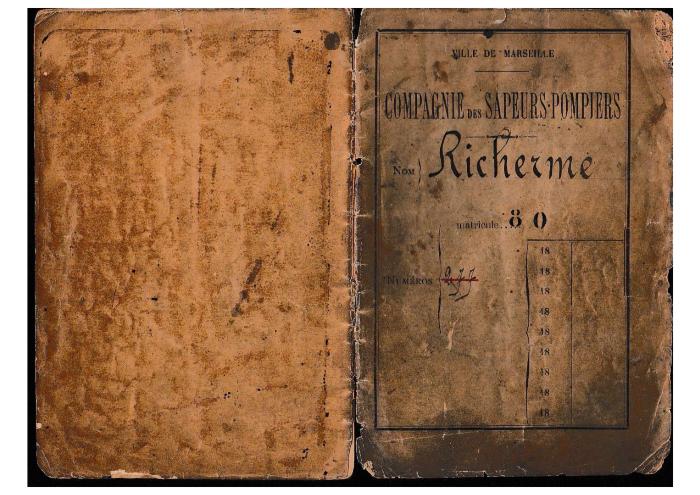 VILLE DE MARSEILLE
COMPAGNIE DES SAPEURS-POMPIERS
NOM Richerme
matricule 80
NUMÉROS
18
18
18
18
18
18
18
18
18